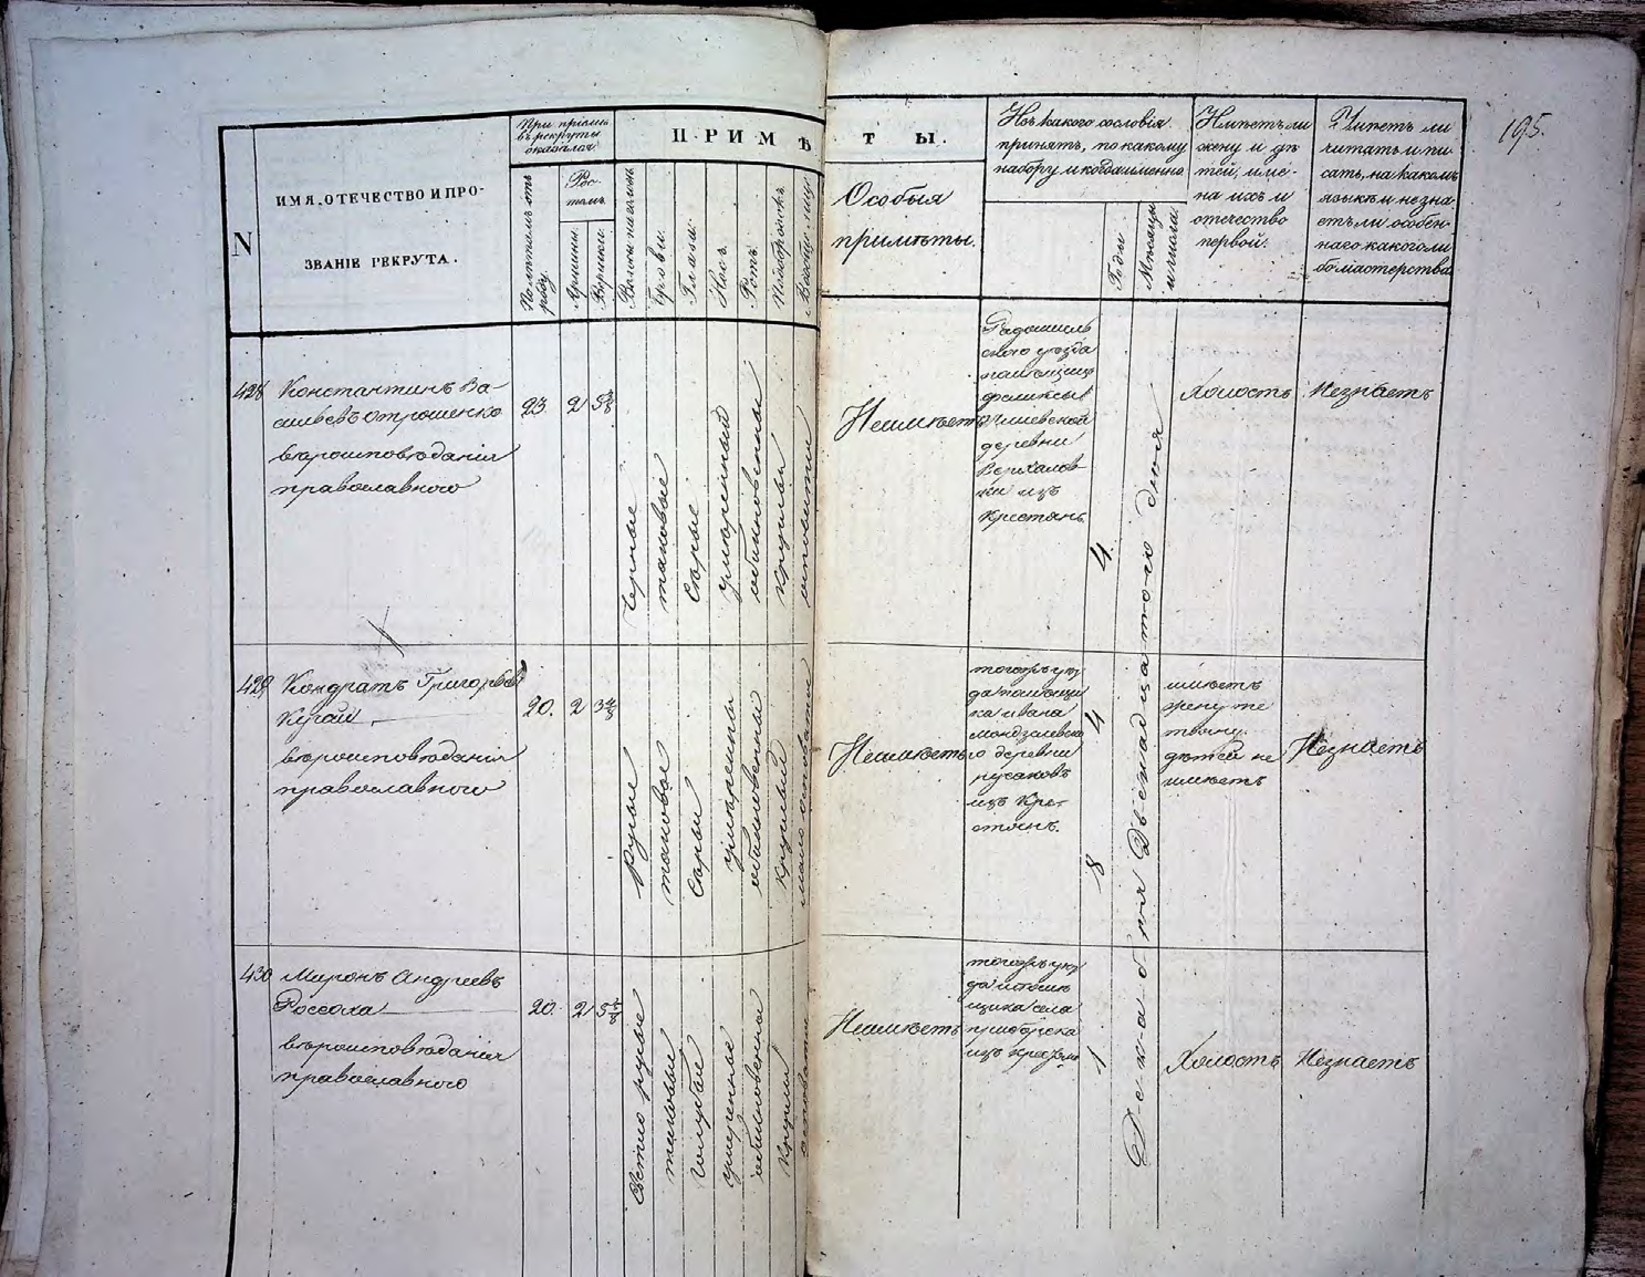 195.
N
ИМЯ, ОТЕЧЕСТВО И ПРО-
ЗВАНІЕ РЕКРУТА.
При пріемѣ
въ рекруты
оказался
По лѣтамъ отъ
роду.
Рос-
томъ
Аршины.
Вершки.
ПРИМѢТЫ.
Волосы на головѣ
Брови.
Глаза.
Носъ.
Ротъ.
Подбородокъ
Вообще лицо
Особыя
примѣты.
Изъ какого сословія
принятъ, по какому
набору и когда именно
Годы
Мѣсяцы
и числа.
Имѣетъ ли
жену и дѣ
тей, име-
на ихъ и
отечество
первой.
Умѣетъ ли
читать и пи
сать, на какомъ
языкѣ и не зна
етъ ли особен
наго какого ли
бо мастерства
428
Константинъ Ва-
сильевъ Отрошенко
вѣроисповѣданія
православнаго
23.
2
5
Черные
таковые
Сѣрые
умѣренный
обыкновенный
круглый
Неимѣетъ
Радомысль
скаго уѣзда
деревни
изъ
Крестянъ
4.
Декабря Двенадцатого дня
Холостъ
Незнаетъ
429
Кондратъ Григорьевъ
вѣроисповѣданія
православнаго
20.
2
3
Русые
таковые
Сѣрые
умѣренный
обыкновенный
круглый
Неимѣетъ
тогожъ уѣз
да помѣщи
ка Ивана
деревни
изъ Кре-
стянъ.
4
8
имѣетъ
жену
дѣтей не
имѣетъ
Незнаетъ
430
Миронъ Андреевъ
Россоха
вѣроисповѣданія
православнаго
20.
2
5
Свѣтло русые
таковые
голубые
умѣренный
обыкновенный
круглый
Неимѣетъ
тогожъ уѣз
да
щика села
изъ
1
Холостъ
Незнаетъ